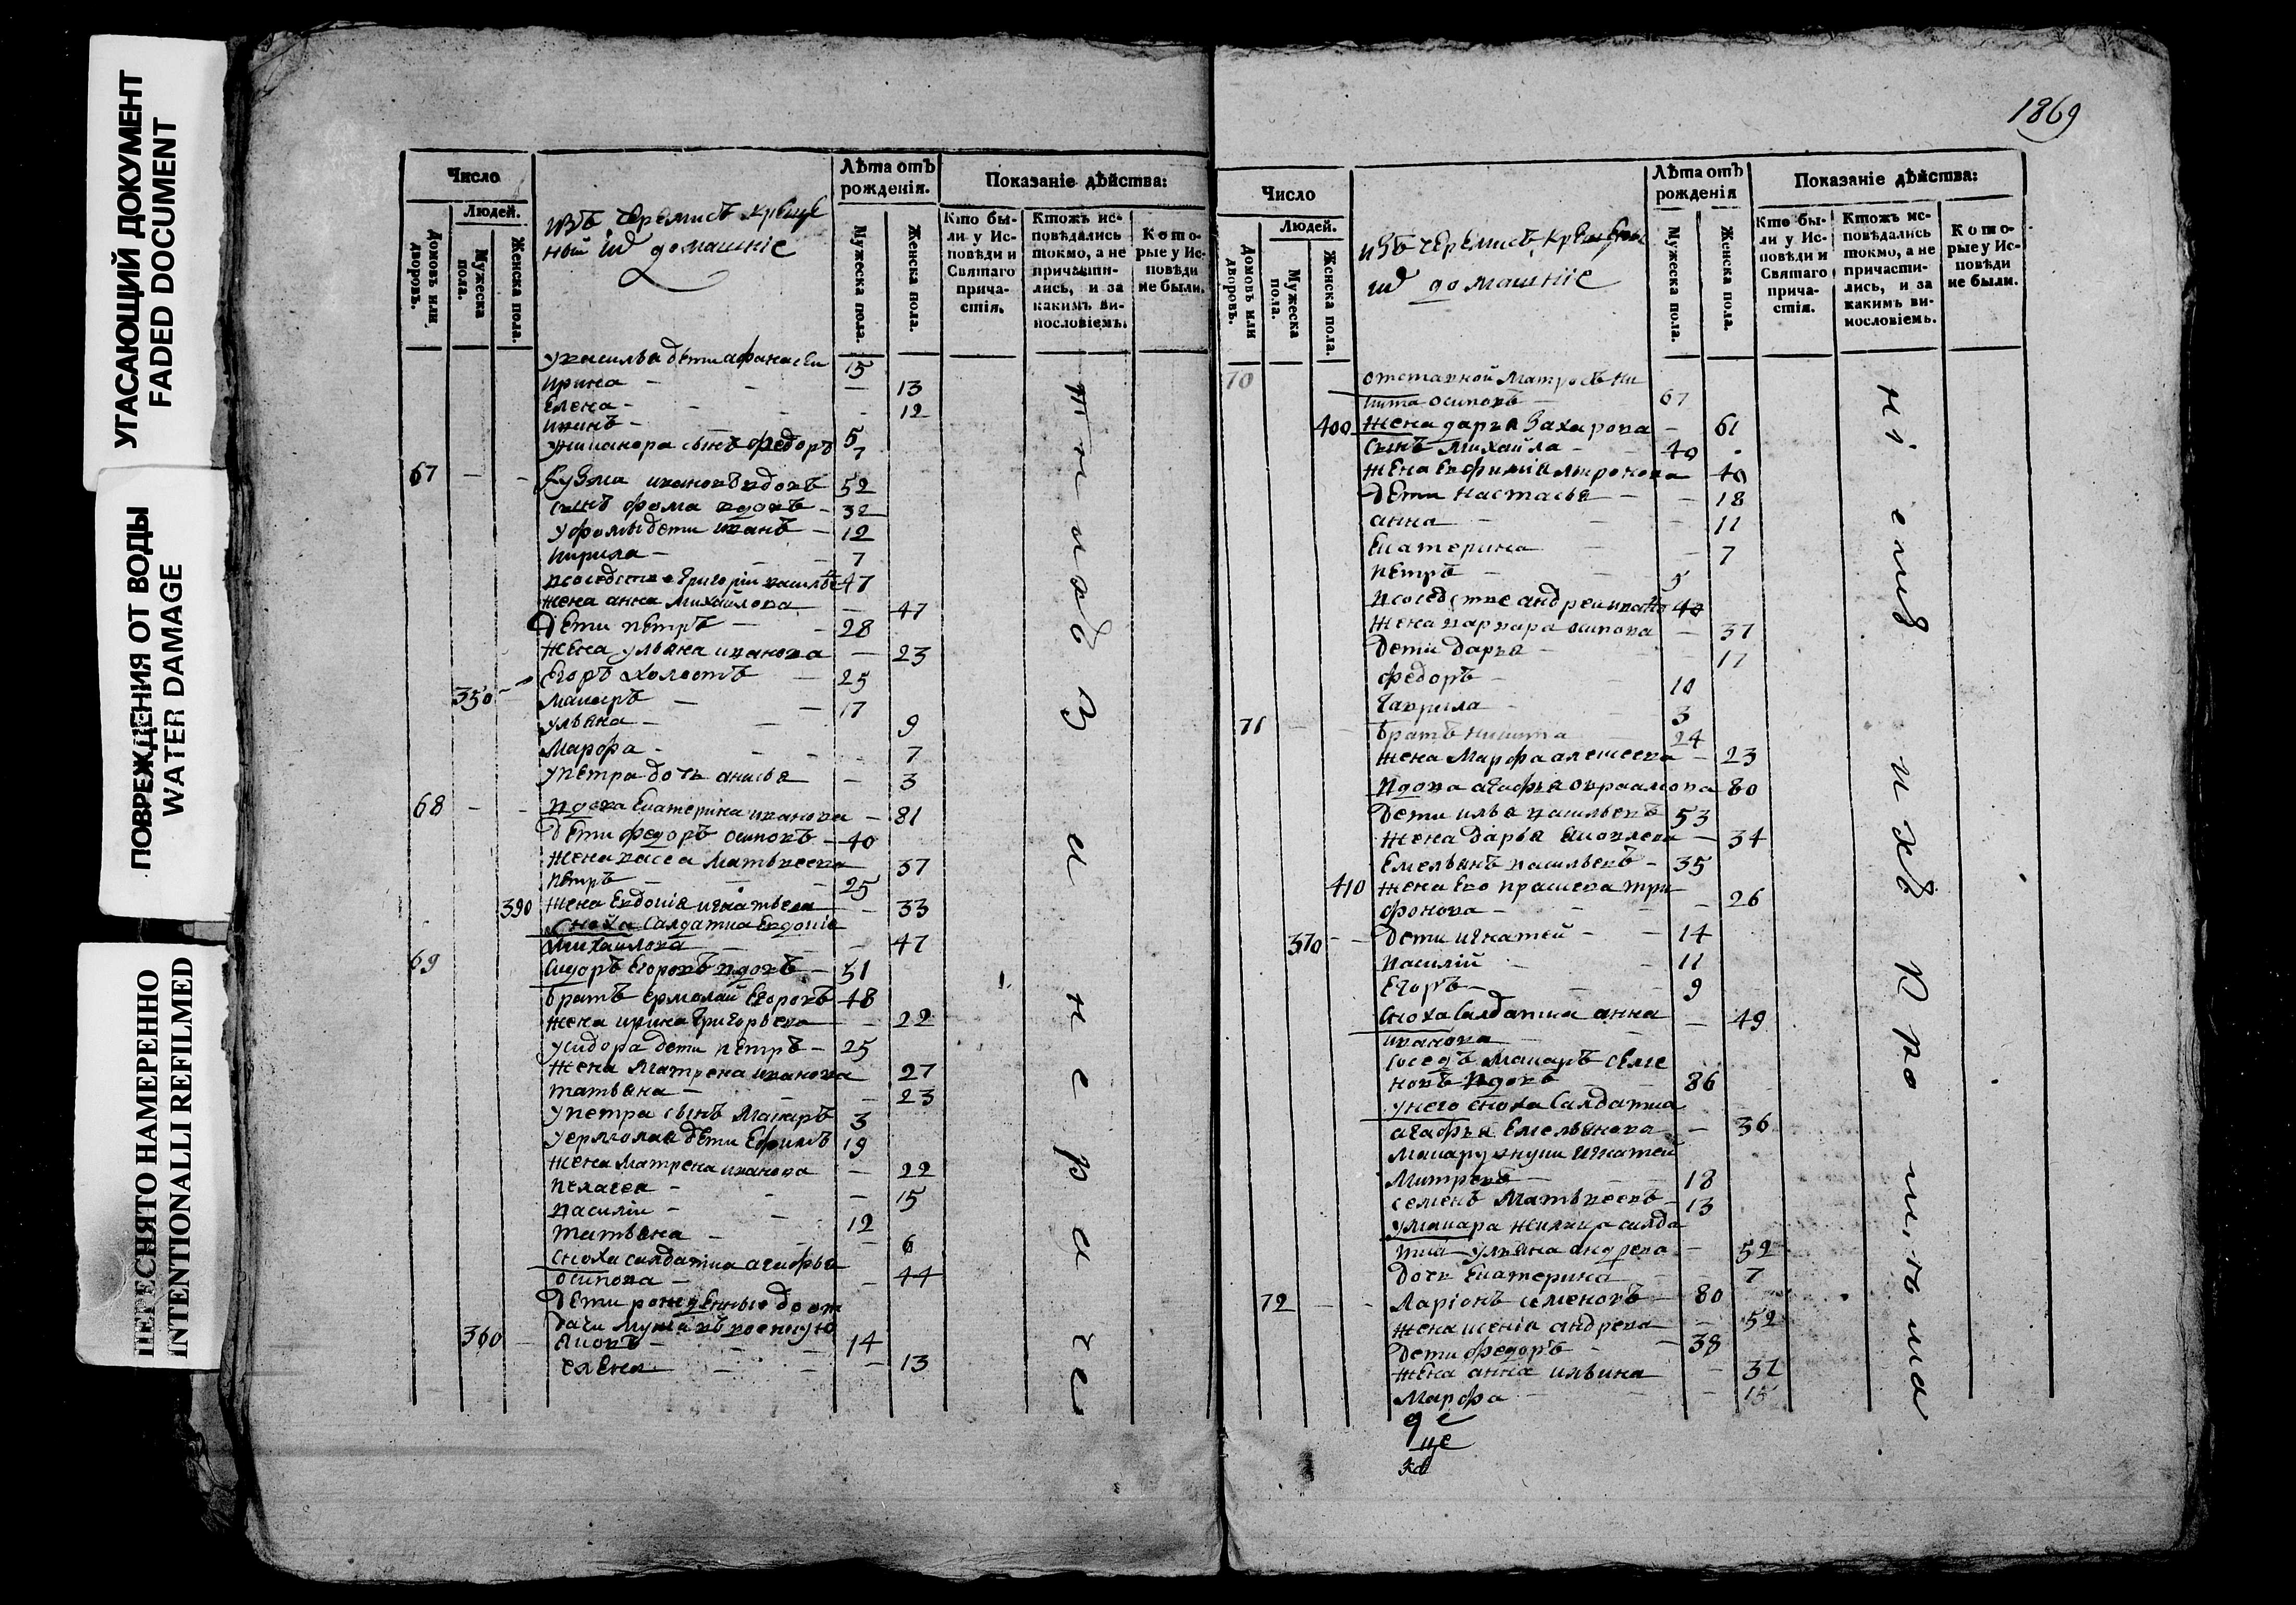 УГАСАЮЩИЙ ДОКУМЕНТ
FADED DOCUMENT
ПОВРЕЖДЕНИЯ ОТ ВОДЫ
WATER DAMAGE
ПЕРЕСНЯТО НАМЕРЕННО
INTENTIONALLI REFILMED
Число
Людей.
Домовъ или дворовъ.
Мужеска пола.
Женска пола.
изъ черемисъ креще
ной ихъ домашніе
Лѣта отъ рожденія.
Мужеска пола.
Женска пола.
Показаніе дѣйства:
Кто бы-
ли у Ис-
повѣди и
Святаго
прича-
стія.
Ктожъ ис-
повѣдались
токмо, а не
причасти-
лись, и за
какимъ ви-
нословіемъ.
Кото-
рые у Ис-
повѣди
не были.
увасилья дети афанасеи 15
ирина - 13
Елена - 12
иванъ - 5
униканора сынъ федоръ 7
67 Кузма ивановъ вдовъ 52
сынъ фома вдовъ - 32
уфомы дети иванъ - 12
кирила - 7
всоседстве григорій васильевъ 47
жена анна михайлова 47
Дети петръ - 28
жена ульяна иванова - 23
Егоръ холостъ - 25
350 макаръ - 17
ульяна - 9
Марфа - 7
упетра дочь анисья - 3
68 вдова Екатерина иванова - 81
Дети федоръ осиповъ - 40
жена васса матвеева 37
петръ - 25
390 жена Евдокія игнатьева - 33
сноха салдатка Евдокія
михайлова - 47
69 сидоръ Егоровъ вдовъ - 51
братъ ермолай Егоровъ 48
жена ирина григорьева - 22
усидора дети петръ - 25
жена матрена иванова 27
татьяна - 23
упетра сынъ макаръ 3
уермолая дети Ефимъ 19
жена матрена иванова - 22
пелагея - 15
василіи - 12
татьяна - 6
сноха салдатка агафья
осипова - 44
Дети рожденные до от
дачи мужа въ военную
360 яковъ - 14
елена - 13
1869
Число
Людей.
Домовъ или дворовъ.
Мужеска пола.
Женска пола.
изъ черемисъ крещеные
ихъ домашніе
Лѣта отъ рожденія
Мужеска пола.
Женска пола.
Показаніе дѣйства:
Кто бы-
ли у Ис-
повѣди и
Святаго
прича-
стія.
Ктожъ ис-
повѣдались
токмо, а не
причасти-
лись, и за
какимъ ви-
нословіемъ.
Кото-
рые у Ис-
повѣди
не были.
70 отставной матросъ ни
кита осиповъ - 67
400 жена дарья захарова - 61
сынъ михайла - 40
жена Евфимія миронова 40
Дети настасья - 18
анна - 11
Екатерина - 7
петръ - 5
всоседстве андреи ивановъ 40
жена варвара осипова - 37
Дети дарья - 17
федоръ - 10
гаврила - 3
71 братъ никита - 24
жена марфа алексеева - 23
вдова агафья авраамова 80
Дети илья васильевъ 53
жена дарья яковлева - 34
Емельянъ васильевъ - 35
410 жена Его прасковья три
фонова - 26
370 Дети игнатей - 14
василій - 11
Егоръ - 9
сноха салдатка анна 49
иванова -
соседъ макаръ семе
новъ вдовъ 86
унего сноха салдатка
агафья Емельянова - 36
макару внуки игнатей
митревъ - 18
семенъ матвеевъ - 13
умакара жилица салда
тка ульяна андрева - 52
дочь Екатерина - 7
72 Ларіонъ семеновъ - 80
жена ксенія андрева 52
Дети федоръ - 38
жена анна ильина - 37
Марфа - 15